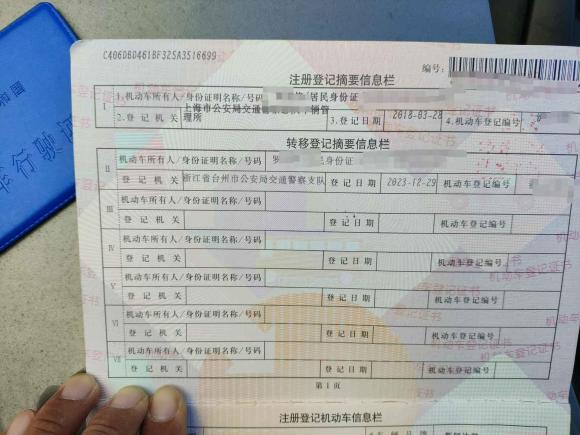 C406DBD461BF325A3516699
编号:
注册登记摘要信息栏
I 1.机动车所有人/身份证明名称/号码 居民身份证
2.登记机关 上海市公安局交通 理所 3.登记日期 2018-03-28 4.机动车登记编号
转移登记摘要信息栏
II 机动车所有人/身份证明名称/号码 身份证
登记机关 浙江省台州市公安局交通警察支队 登记日期 2023-12-29 机动车登记编号
III 机动车所有人/身份证明名称/号码
登记机关 登记日期 机动车登记编号
IV 机动车所有人/身份证明名称/号码
登记机关 登记日期 机动车登记编号
V 机动车所有人/身份证明名称/号码
登记机关 登记日期 机动车登记编号
VI 机动车所有人/身份证明名称/号码
登记机关 登记日期 机动车登记编号
VII 机动车所有人/身份证明名称/号码
登记机关 登记日期 机动车登记编号
第1页
注册登记机动车信息栏
行驶证
机动车登记证书